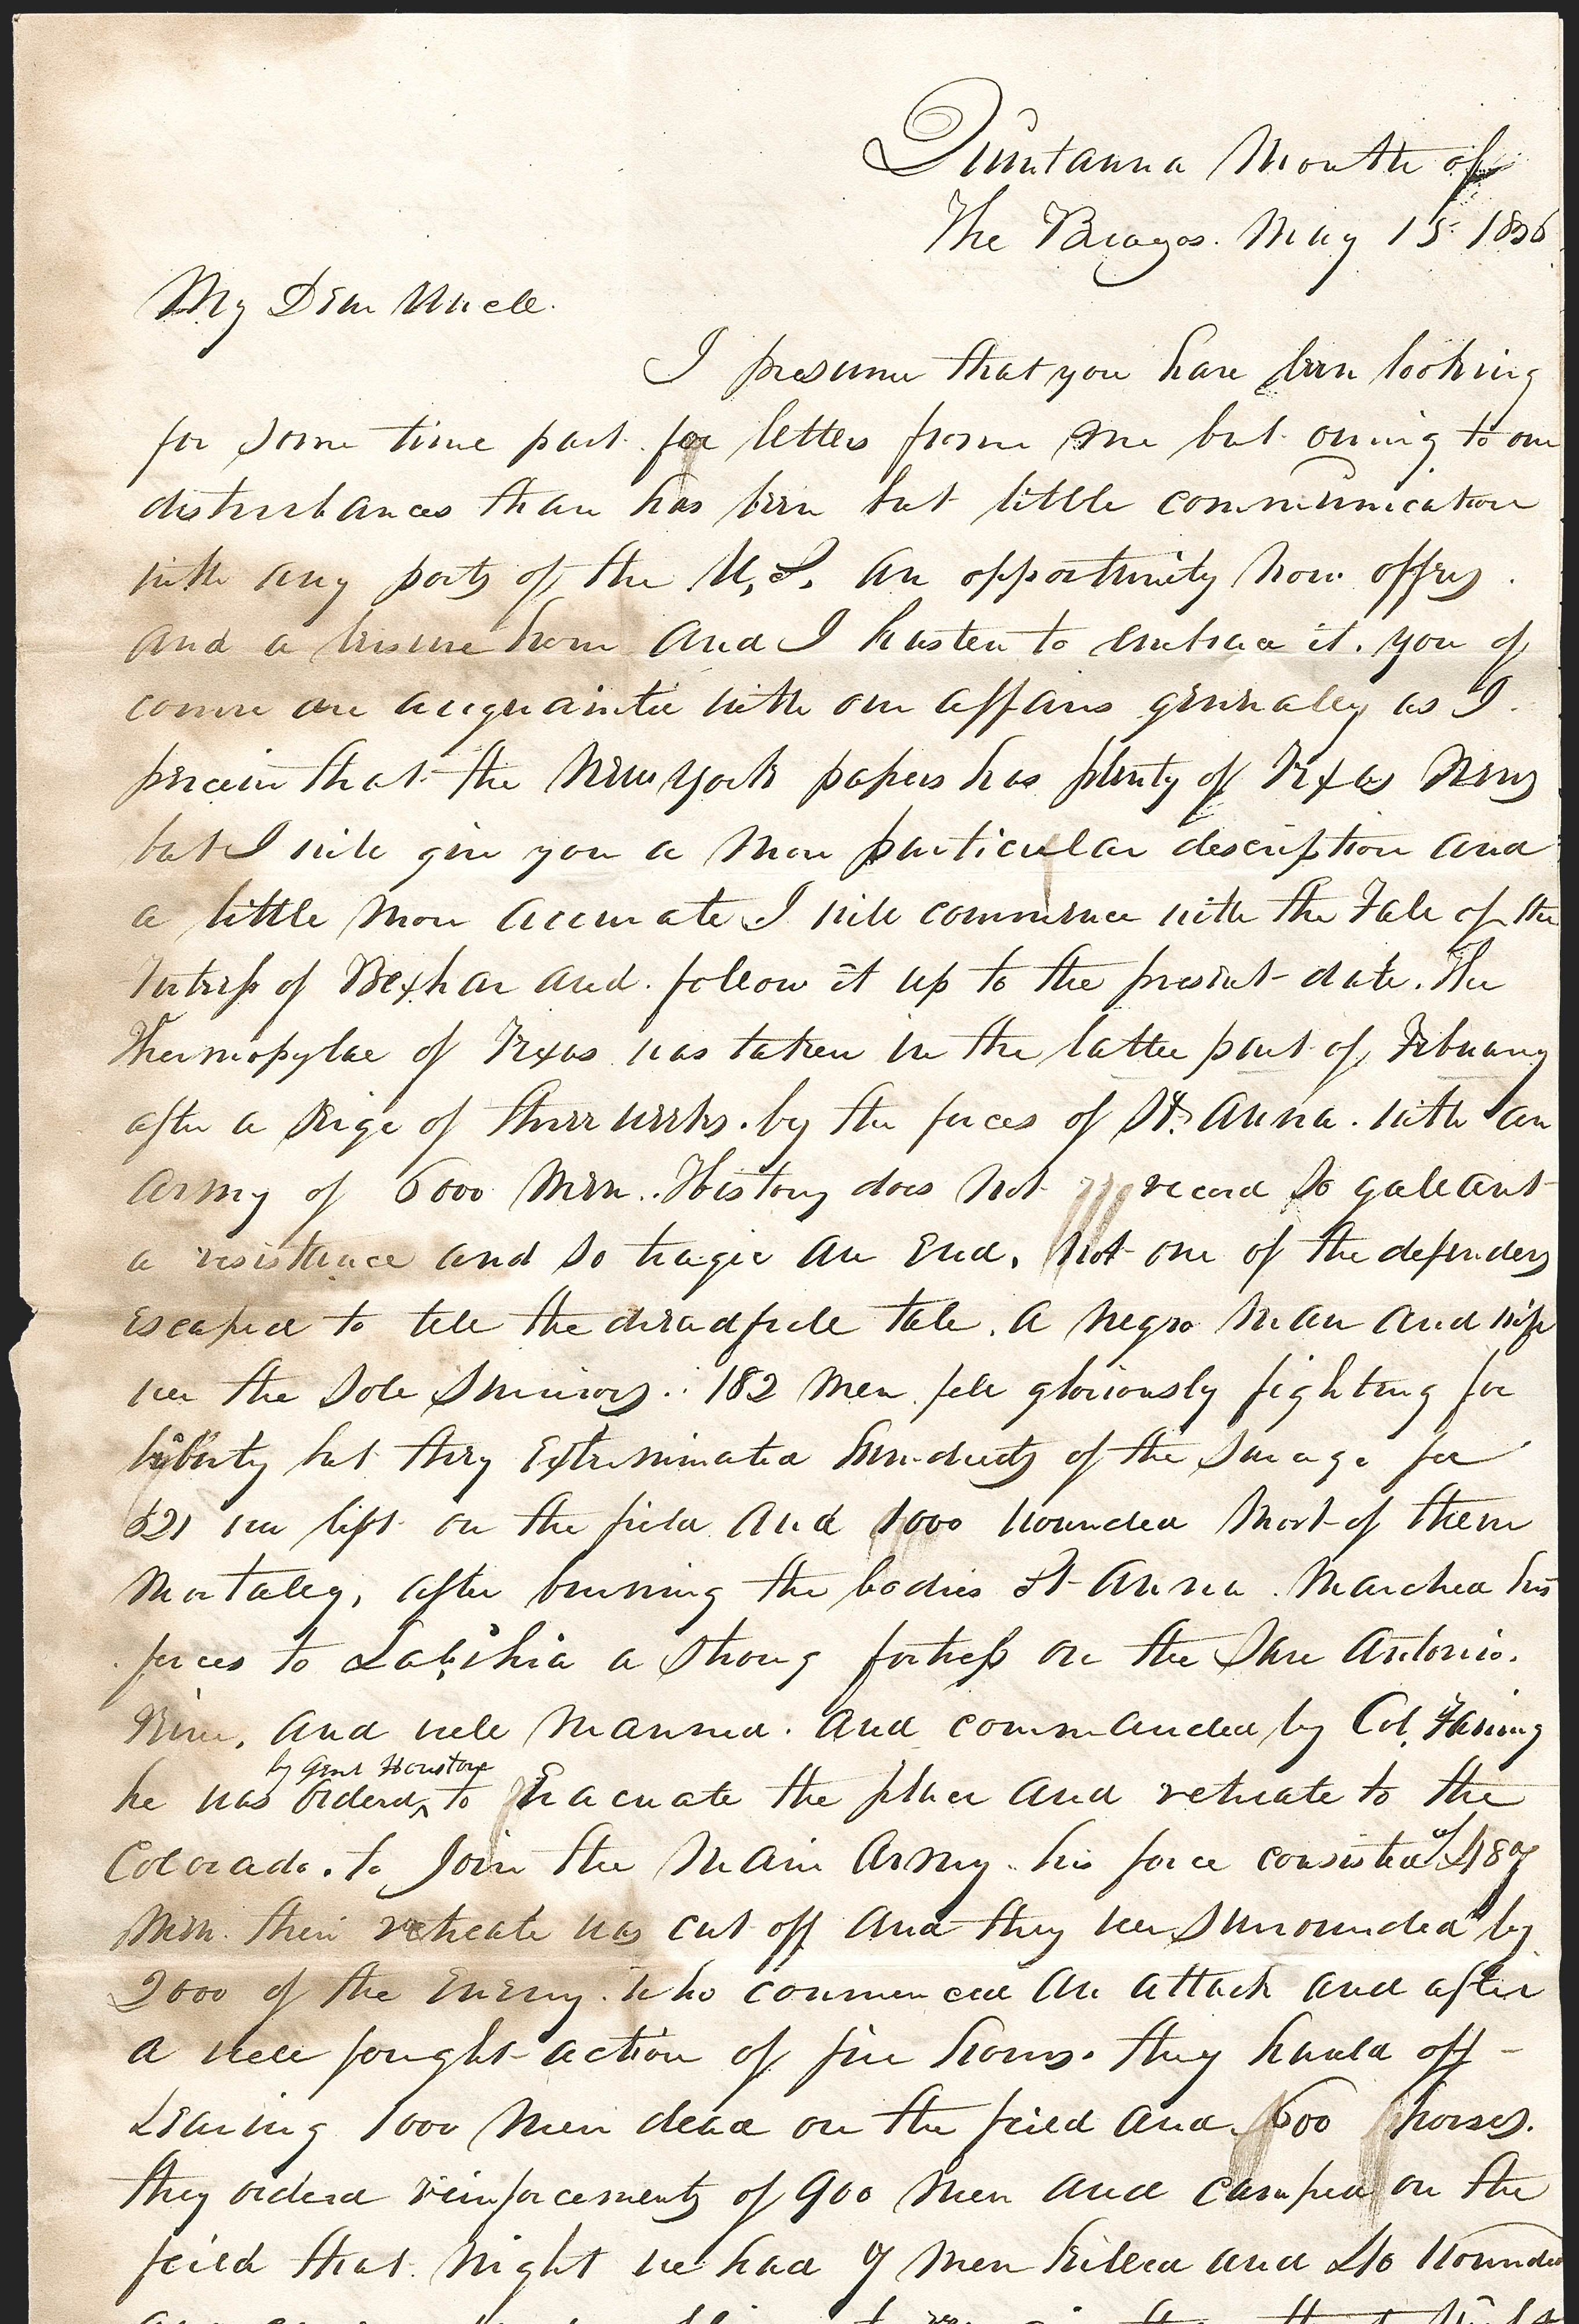 Quintanna Mouth of
The Brazos. May 15 1836
My Dear Uncle.
I presume that you have been looking
for some time past for letters from me but owing to our
disturbances thare has been but little communication
with any parts of the U,S. an opportunity now offers.
and a leisure hour and I hasten to embrace it. you of
course are acquainted with our affairs generally as I
perceive that the New York papers has plenty of Texas News
but I will give you a more particular description and
a little more accurate I will commence with the Fall of the
Fortress of Bexhar and follow it up to the present date. The
Thermopylae of Texas was taken in the latter part of February
after a seige of three weeks. by the forces of St. Anna. with an
army of 6000 men.. History does not record so gallant
a resistance and so tragic an End, not one of the defenders
escaped to tell the dreadfull tale. a Negro man and wife
wer the sole survivors. 182 men fell gloriously fighting for
liberty but they Exterminated hundreds of the savage foe
521 wer left on the field and 1000 wounded most of them
mortally, after burning the bodies St Anna. marched his
forces to Labihia a strong fortress on the San Antonio.
River, and well manned. and commanded by Col. Faning
he was orderd ^by Genl Houston to Evacuate the place and retreate to the
Colorado. to Join the Main Army. his force consisted of 487
men. their retreate was cut off and they wer surrounded by
2000 of the Enemy. who commenced an attack and after
a well fought action of five hours. they hauld off -
Leaving 1000 men dead on the feild and 600 horses.
they orderd reinforcements of 900 men and camped on the
feild that night we had 7 men killed and 40 wounded